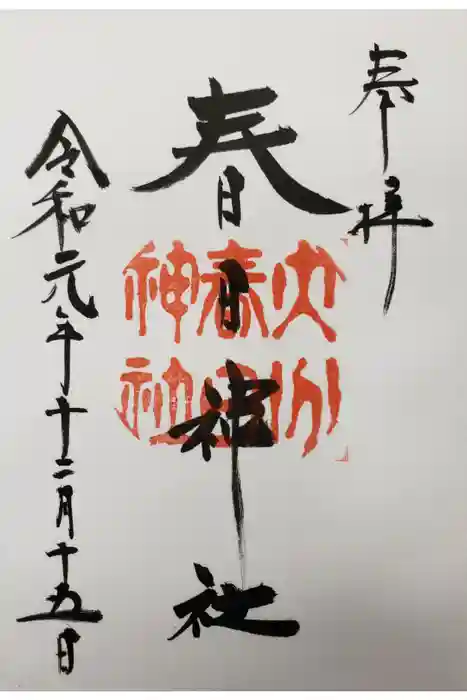 奉拝
春日神社
令和元年十二月十五日
春日
神社